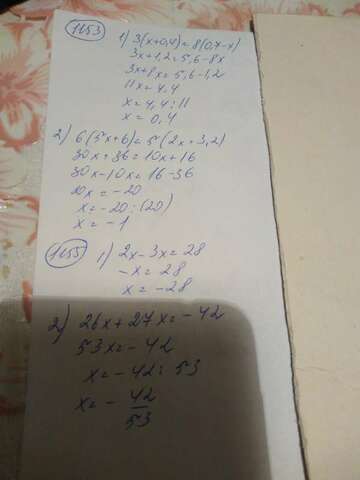 1153
1) 3(x+0,4)=8(0,7-x)
3x+1,2=5,6-8x
3x+8x=5,6-1,2
11x=4,4
x=4,4:11
x=0,4
2) 6(5x+6)=5(2x+3,2)
30x+36=10x+16
30x-10x=16-36
20x=-20
x=-20:(20)
x=-1
1155
1) 2x-3x=28
-x=28
x=-28
2) 26x+27x=-42
53x=-42
x=-42:53
x=-42/53